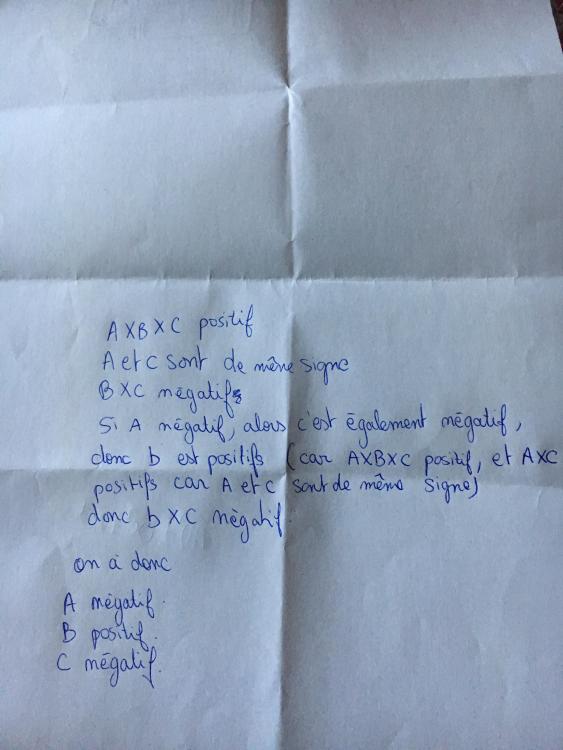 A X B X C positif
A et C sont de même signe
B X C négatifs
Si A négatif, alors c'est également négatif,
donc b est positifs (car AXBXC positif, et AXC
positifs car A et C sont de même signe)
donc b X C négatif.
on à donc
A négatif.
B positif.
C négatif.